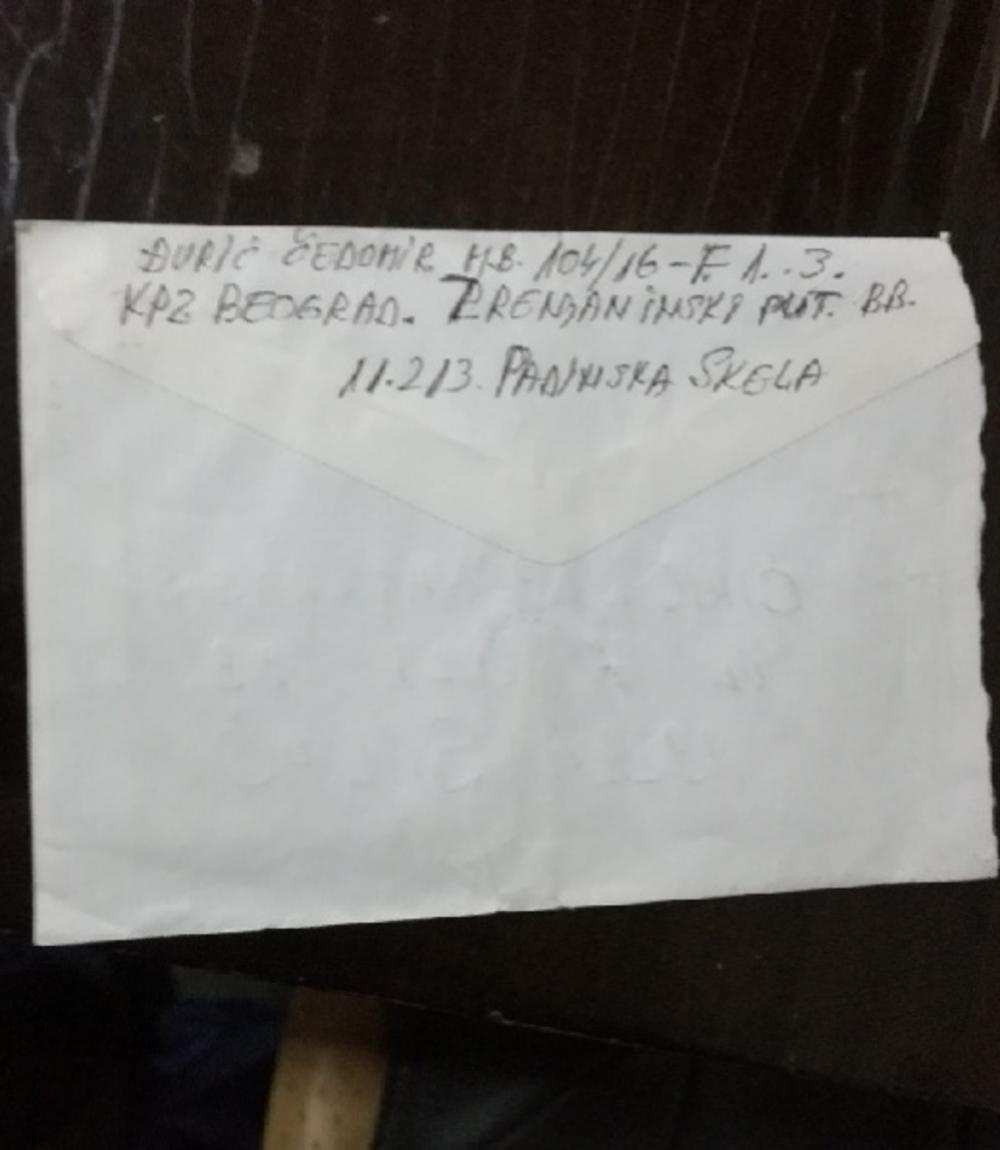 ĐURIĆ ČEDOMIR M.B. 104/16-F. 1. . 3.
KPZ BEOGRAD. ZRENJANINSKI PUT. BB.
11.213. PADINSKA SKELA